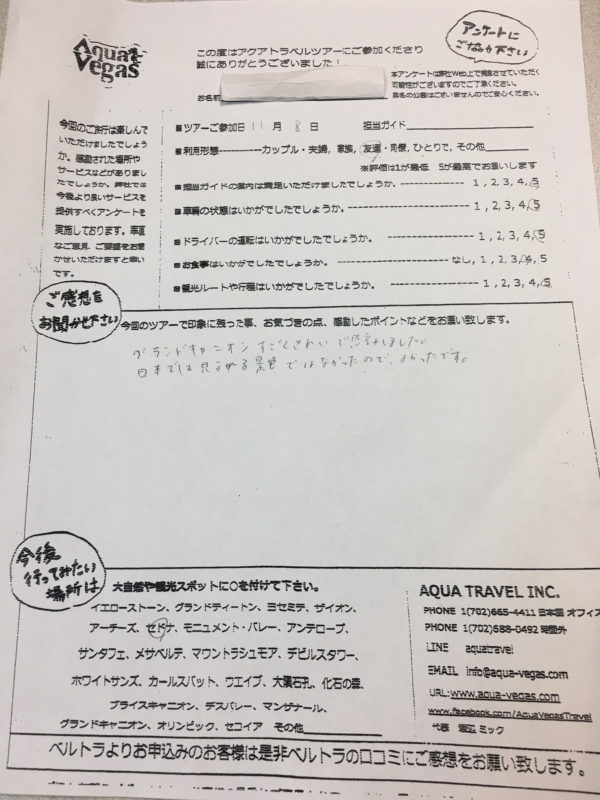 Aqua Vegas
この度はアクアトラベルツアーにご参加くださり
誠にありがとうございました！
アンケートに
ご協力下さい
本アンケートは弊社Web上で掲載させていただく
可能性がございますのでご了承ください。
実名の公開はございませんのでご安心ください。
お名前
今回のご旅行は楽しんで
いただけましたでしょう
か。感動された場所や
サービスなどがありまし
たでしょうか。弊社では
今後より良いサービスを
提供すべくアンケートを
実施しております。率直
なご意見、ご要望をお聞
かせいただけますと幸い
です。
■ツアーご参加日 11 月 8 日 担当ガイド
■利用形態----------カップル・夫婦, 家族, 友達・同僚, ひとりで, その他
※評価は1が最低 5が最高でお願いします
■担当ガイドの案内は満足いただけましたでしょうか。-------------- 1, 2, 3, 4, 5
■車輌の状態はいかがでしたでしょうか。-------------------- 1, 2, 3, 4, 5
■ドライバーの運転はいかがでしたでしょうか。-------------- 1, 2, 3, 4, 5
■お食事はいかがでしたでしょうか。-------------------- なし, 1, 2, 3, 4, 5
■観光ルートや行程はいかがでしたでしょうか。-------------- 1, 2, 3, 4, 5
ご感想を
お聞かせ下さい
今回のツアーで印象に残った事、お気づきの点、感動したポイントなどをお願い致します。
グランドキャニオンすごくきれいで感動しました。
日本では見られる景色ではなかったので、よかったです。
今後
行ってみたい
場所は
大自然や観光スポットに○を付けて下さい。
イエローストーン、グランドティートン、ヨセミテ、ザイオン、
アーチーズ、セドナ、モニュメント・バレー、アンテロープ、
サンタフェ、メサベルデ、マウントラシュモア、デビルスタワー、
ホワイトサンズ、カールスバット、ウエイブ、大隕石孔、化石の森、
ブライスキャニオン、デスバレー、マンザナール、
グランドキャニオン、オリンピック、セコイア その他
AQUA TRAVEL INC.
PHONE 1(702)665-4411 日本語 オフィス
PHONE 1(702)588-0492 時間外
LINE aquatravel
EMAIL info@aqua-vegas.com
URL: www.aqua-vegas.com
www.facebook.com/AquaVegasTravel
代表 ミック
ベルトラよりお申込みのお客様は是非ベルトラの口コミにご感想をお願い致します。